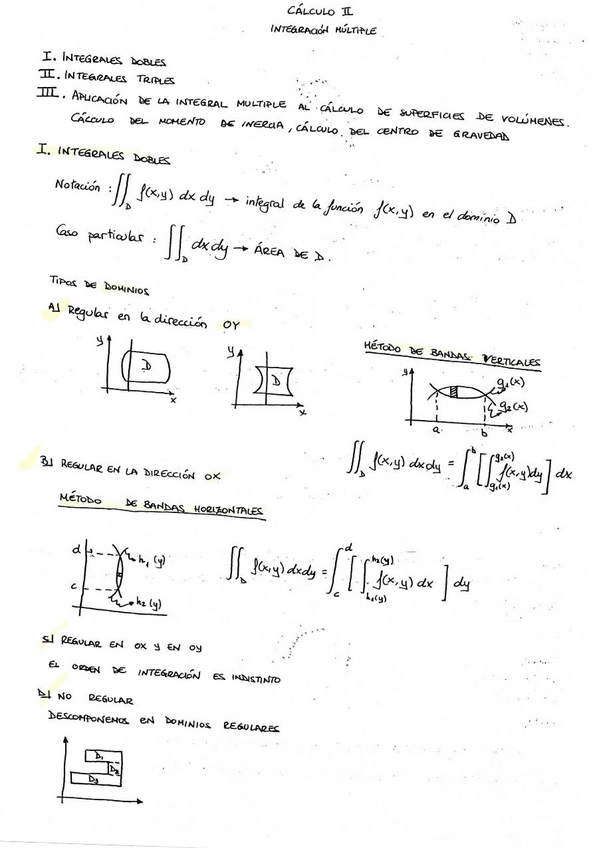 CÁLCULO II
INTEGRACIÓN MÚLTIPLE
I. INTEGRALES DOBLES
II. INTEGRALES TRIPLES
III. APLICACIÓN DE LA INTEGRAL MULTIPLE AL CÁLCULO DE SUPERFICIES DE VOLÚMENES.
CÁLCULO DEL MOMENTO DE INERCIA, CÁLCULO DEL CENTRO DE GRAVEDAD
I. INTEGRALES DOBLES
Notación : ∬_D f(x,y) dx dy → integral de la función f(x,y) en el dominio D
Caso particular : ∬_D dx dy → ÁREA DE D.
TIPOS DE DOMINIOS
A) Regular en la dirección OY
y D x
y D x
MÉTODO DE BANDAS VERTICALES
y g₁(x) g₂(x) a b x
∬_D f(x,y) dx dy = ∫_a^b [ ∫_{g₁(x)}^{g₂(x)} f(x,y) dy ] dx
B) REGULAR EN LA DIRECCIÓN OX
MÉTODO DE BANDAS HORIZONTALES
d c h₁(y) h₂(y)
∬_D f(x,y) dx dy = ∫_c^d [ ∫_{h₁(y)}^{h₂(y)} f(x,y) dx ] dy
C) REGULAR EN OX Y EN OY
EL ORDEN DE INTEGRACIÓN ES INDISTINTO
D) NO REGULAR
DESCOMPONEMOS EN DOMINIOS REGULARES
D₁
D₂
D₃